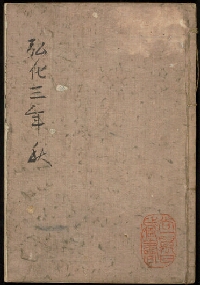 弘化三年秋